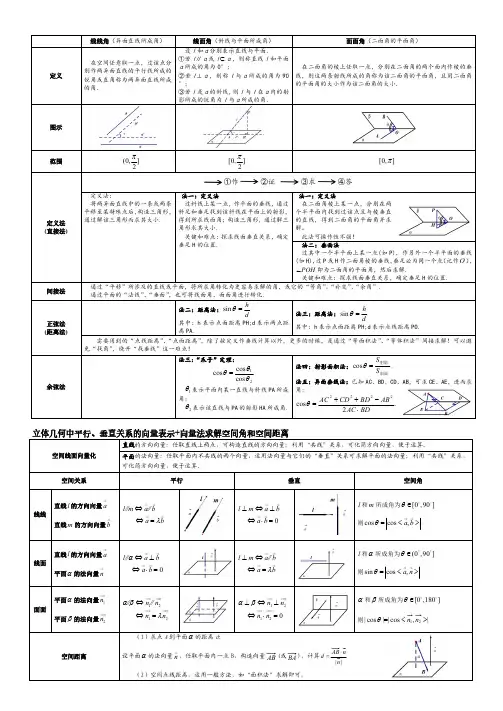 线线角（异面直线所成角）
线面角（斜线与平面所成角）
面面角（二面角的平面角）
定义
在空间任意取一点，过该点分
别作两异面直线的平行线所成的
锐角或直角称为两异面直线所成
的角。
设 l 和 α 分别表示直线与平面。
①若 l // α 或 l ⊂ α，则称直线 l 和平面
α 所成的角为 0°；
②若 l ⊥ α，则称 l 与 α 所成的角为 90
°；
③若 l 是 α 的斜线，则 l 与 l 在 α 内的射
影所成的锐角为 l 与 α 所成的角。
在二面角的棱上任取一点，分别在二面角的两个面内作棱的垂
线，则这两条射线所成的角称为该二面角的平面角，且因二面角
的平面角的大小作为该二面角的大小。
图示
范围
(0, π/2]
[0, π/2]
[0, π]
定义法
(直接法)
①作 ②证 ③求 ④答
定义法：
将两异面直线中的一条或两条
平移至某特殊点后，构造三角形，
通过解该三角形而求其大小.
法一：定义法
过斜线上某一点，作平面的垂线，通过
斜足和垂足找到该斜线在平面上的射影，
得到所求线面角；构造三角形，通过解三
角形求其大小.
关键和难点：探求线面垂直关系，确定
垂足 H 的位置.
法一：定义法
在二面角棱上某一点，分别在两
个半平面内找到过该点且与棱垂直
的直线，得到二面角的平面角并求
解.
此法可操作性不强！
法二：垂面法
过其中一个半平面上某一点(如 P)，作另外一个半平面的垂线
(如 H)，过 P 或 H 作二面角棱的垂线，垂足必为同一个点(记作 O)，
∠POH 即为二面角的平面角，然后求解.
关键和难点：探求线面垂直关系，确定垂足 H 的位置.
间接法
通过“平移”所涉及的直线或平面，将所求角转化为更容易求解的角，或它的“等角”、“补角”、“余角”.
通过平面的“法线”、“垂面”，也可将线面角、面面角进行转化.
正弦法
(距离法)
法二：距离法：sin θ = h/d
其中：h 表示点面距离 PH；d 表示两点距
离 PA.
法三：距离法：sin θ = h/d
其中：h 表示点面距离 PH；d 表示点线距离 PO.
需要得到的“点线距离”、“点面距离”，除了按定义作垂线计算以外，更多的时候，是通过“等面积法”、“等体积法”间接求解！可以避
免“找角”，绕开“找垂线”这一难点！
余弦法
法三：“爪子”定理：
cos θ = cos θ₁ / cos θ₂
θ₁ 表示平面内某一直线与斜线 PA 所成
角；
θ₂ 表示该直线与 PA 的射影 HA 所成角.
法四：射影面积法：cos θ = S射影/S原图
法五：异面垂线法：已知 AC、BD、CD、AB，可求 CE、AE，进而求
角：
cos θ = (AC² + CD² + BD² − AB²) / (2AC · BD)
立体几何中平行、垂直关系的向量表示+向量法求解空间角和空间距离
空间线面向量化
直线的方向向量：任取直线上两点，可构造直线的方向向量；利用“共线”关系，可化简方向向量，便于运算.
平面的法向量：任取平面内不共线的两个向量，运用法向量与它们的“垂直”关系可求解平面的法向量；利用“共线”关系，
可化简方向向量，便于运算.
空间关系
平行
垂直
空间角
线线
直线 l 的方向向量 a
直线 m 的方向向量 b
l//m ⇔ a//b
⇔ a = λb
l ⊥ m ⇔ a ⊥ b
⇔ a · b = 0
l 和 m 所成角为 θ ∈ [0°, 90°]
则 cos θ = |cos < a, b >|
线面
直线 l 的方向向量 a
平面 α 的法向量 n
l//α ⇔ a ⊥ b
⇔ a · b = 0
l ⊥ m ⇔ a//b
⇔ a = λb
l 和 α 所成角为 θ ∈ [0°, 90°]
则 sin θ = |cos < a, n >|
面面
平面 α 的法向量 n₁
平面 β 的法向量 n₂
α//β ⇔ n₁//n₂
⇔ n₁ = λn₂
α ⊥ β ⇔ n₁ ⊥ n₂
⇔ n₁ · n₂ = 0
α 和 β 所成角为 θ ∈ [0°, 180°]
则 |cos θ| = |cos < n₁, n₂ >|
空间距离
(1) 求点 A 到平面 α 的距离 d：
设平面 α 的法向量 n；任取平面内一点 B，构造向量 AB (或 BA)，计算 d = |AB · n| / |n|
(2) 空间点线距离，运用一般方法，如“面积法”求解即可.